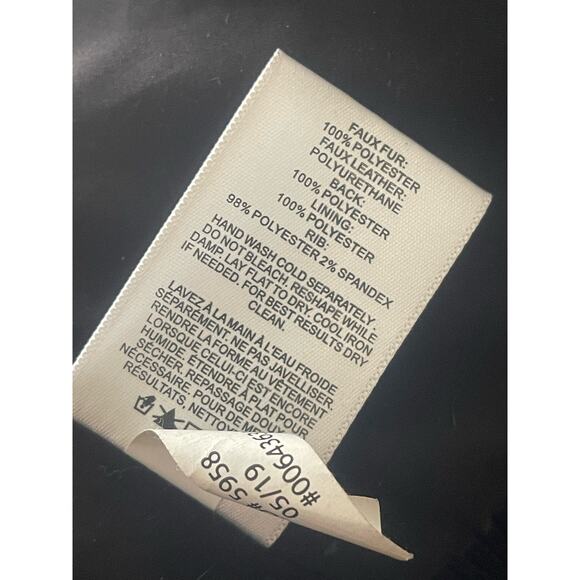 FAUX FUR:
100% POLYESTER
FAUX LEATHER:
POLYURETHANE
BACK:
100% POLYESTER
LINING:
100% POLYESTER
RIB:
98% POLYESTER 2% SPANDEX
HAND WASH COLD SEPARATELY.
DO NOT BLEACH, RESHAPE WHILE
DAMP, LAY FLAT TO DRY, COOL IRON
IF NEEDED. FOR BEST RESULTS DRY
CLEAN.
LAVEZ À LA MAIN À L'EAU FROIDE
SÉPARÉMENT. NE PAS JAVELLISER.
RENDRE LA FORME AU VÊTEMENT
LORSQUE CELUI-CI EST ENCORE
HUMIDE, ÉTENDRE À PLAT POUR
SÉCHER. REPASSAGE POUR
NÉCESSAIRE. POUR DE
RÉSULTATS,
# 5958
05/19